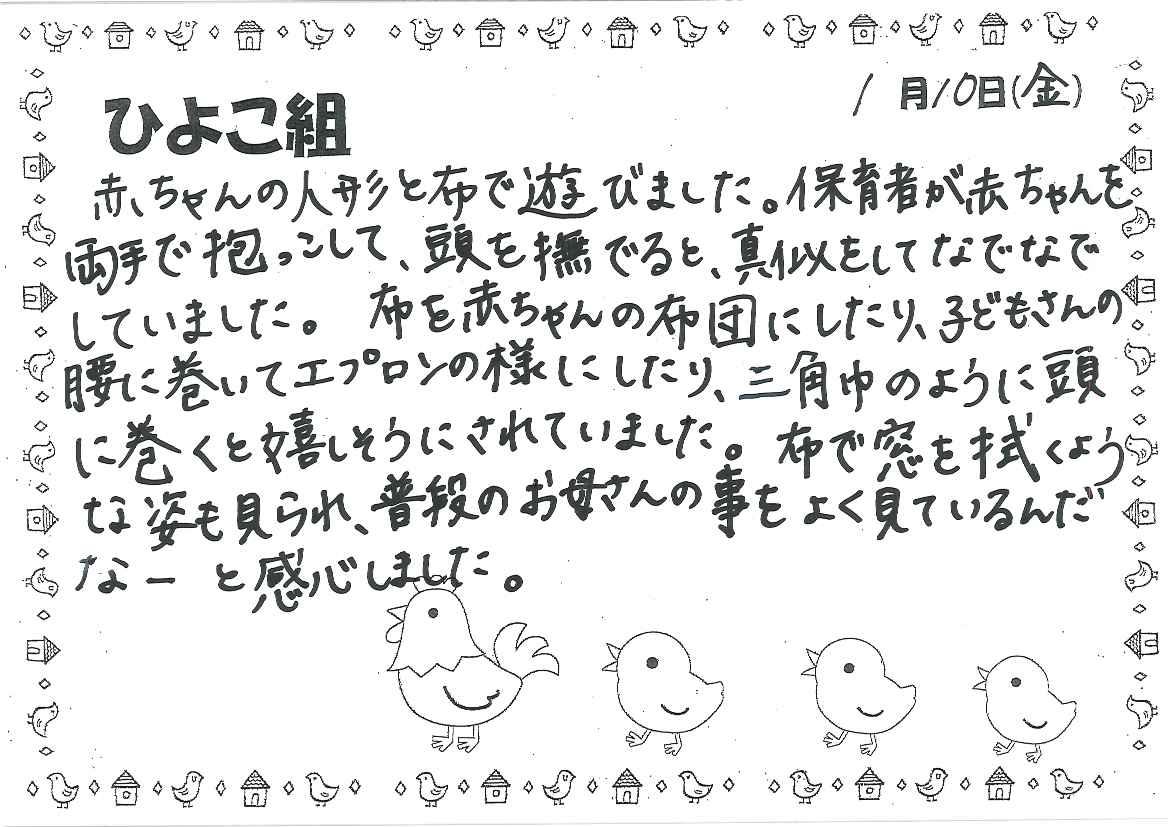 1月10日(金)
ひよこ組
赤ちゃんの人形と布で遊びました。保育者が赤ちゃんを
両手で抱っこして、頭を撫でると、真似をしてなでなで
していました。 布を赤ちゃんの布団にしたり、子どもさんの
腰に巻いてエプロンの様にしたり、三角巾のように頭
に巻くと嬉しそうにされていました。布で窓を拭くよう
な姿も見られ、普段のお母さんの事をよく見ているんだ
なー と感心しました。